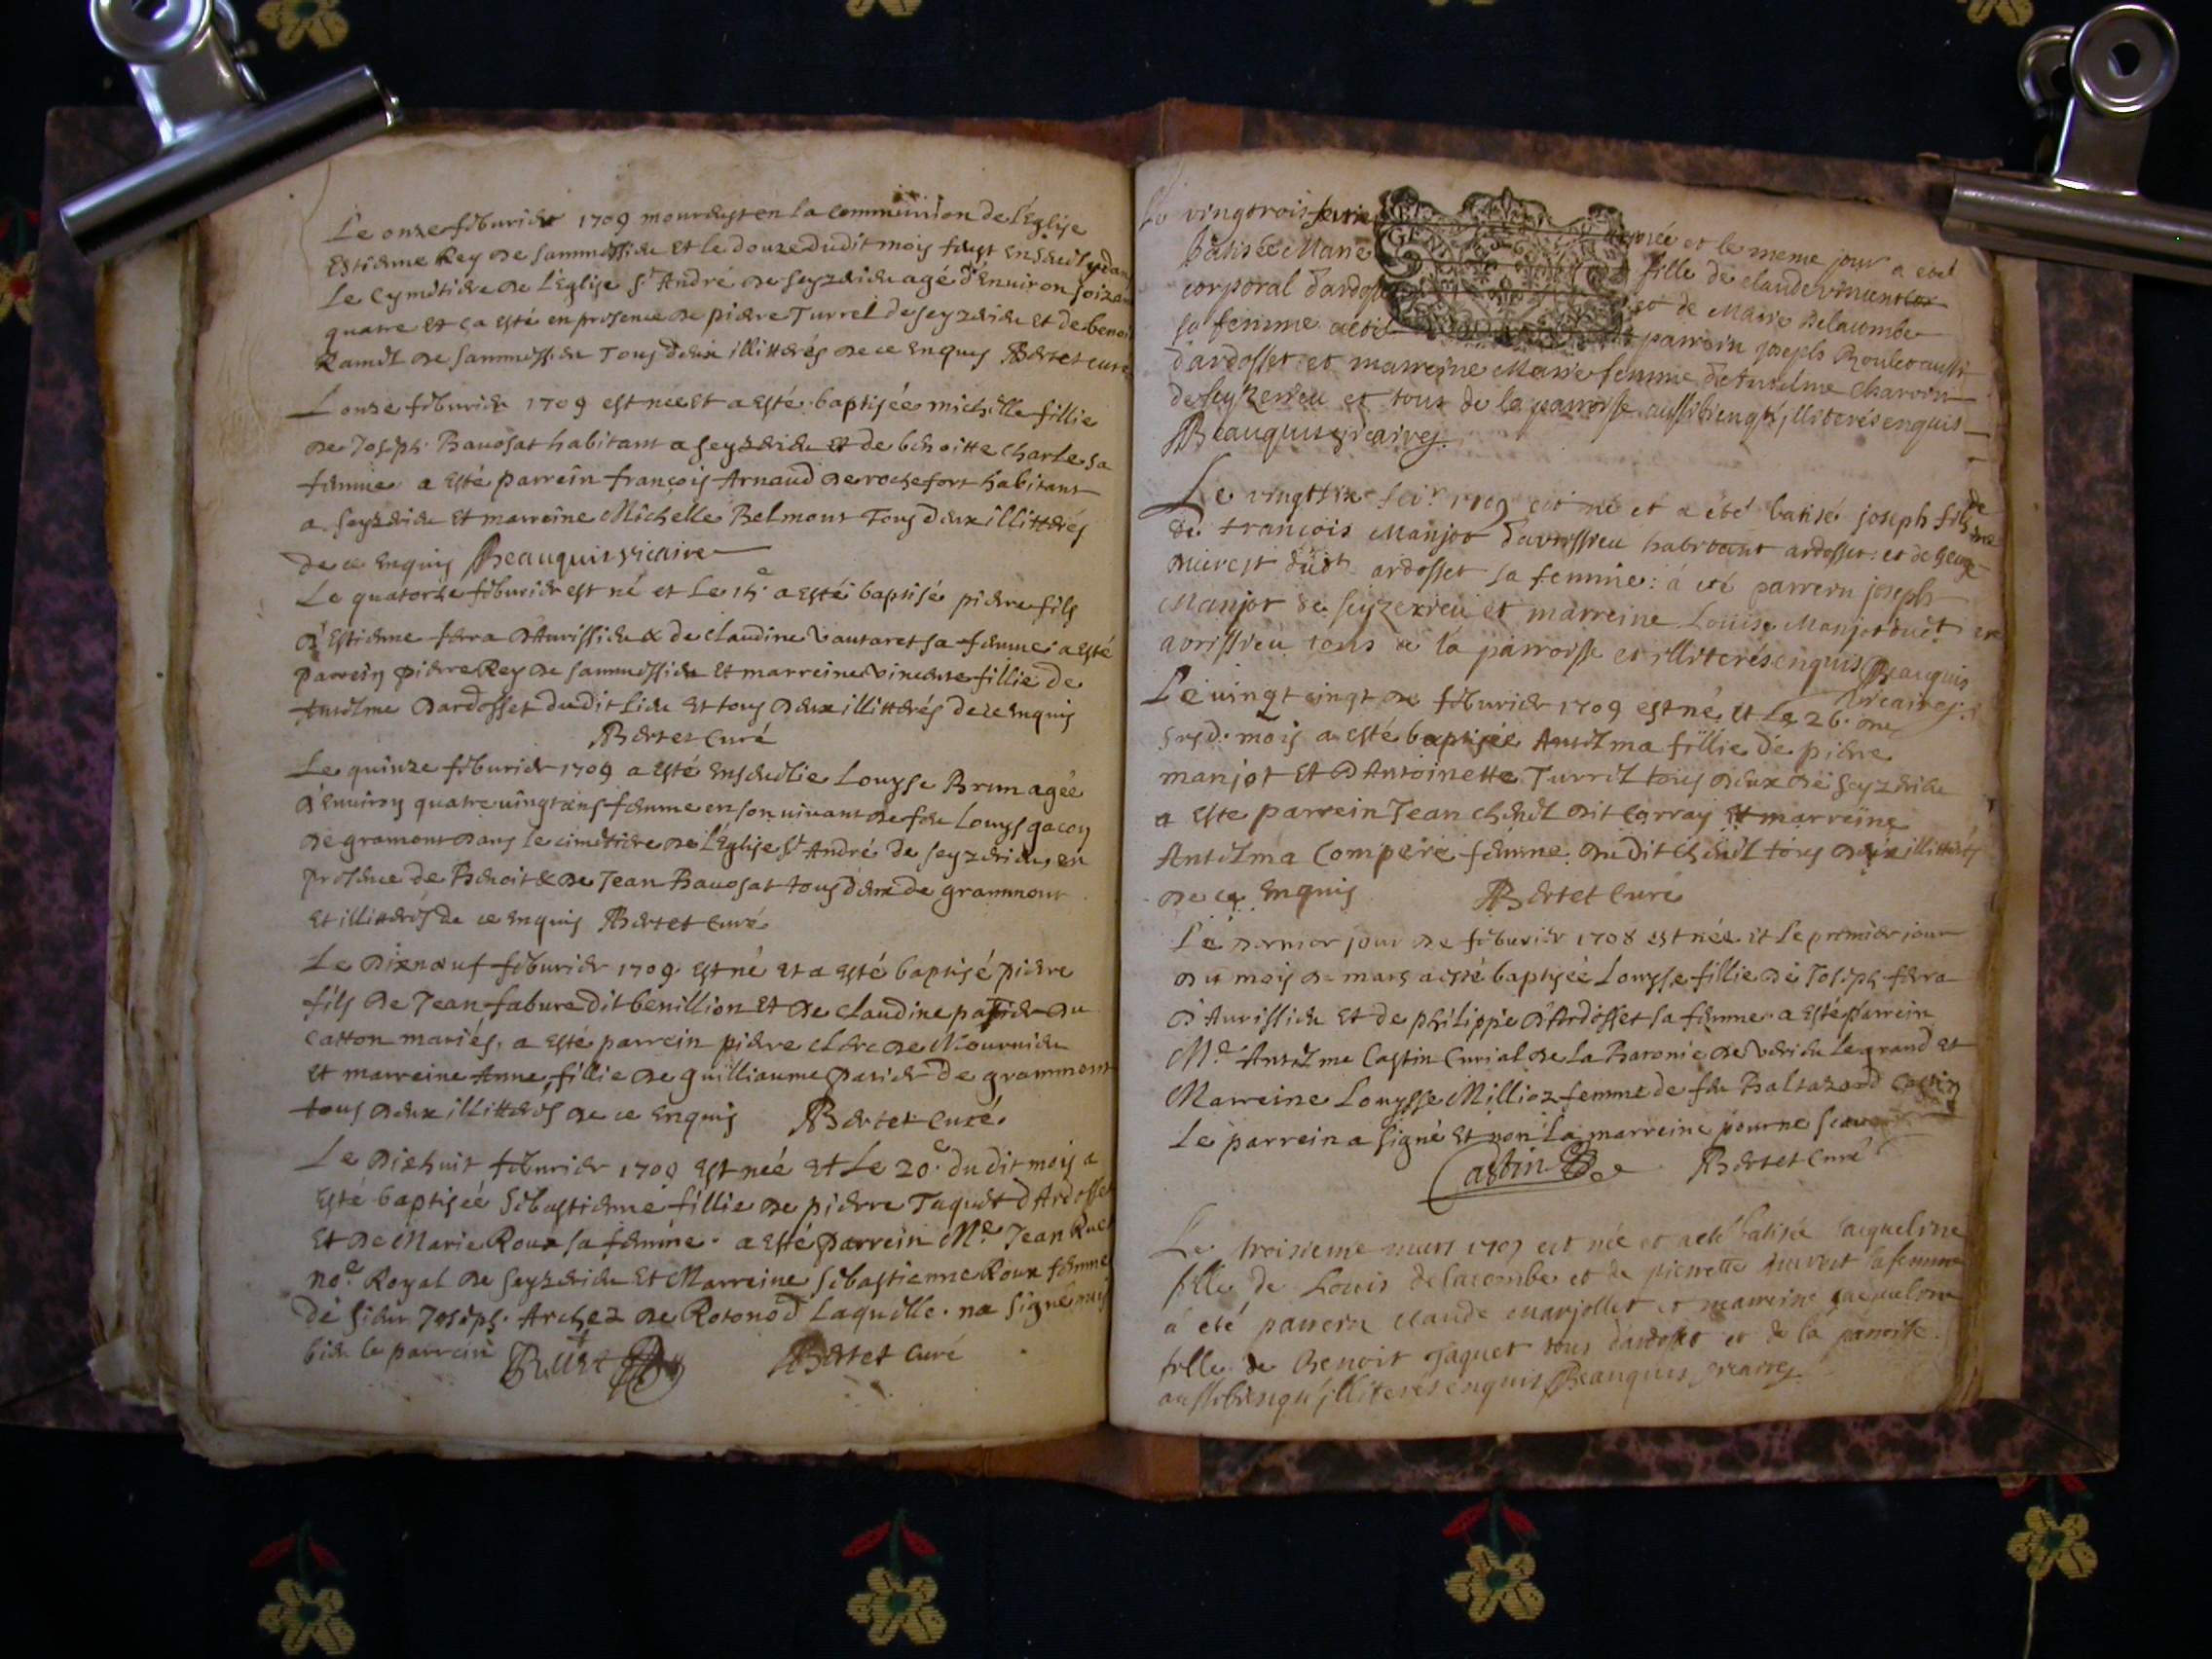 Le onze feburier 1709 mourust en la communion de l'Eglise
Estienne Rey de Sammessieu et le douze dudit mois fust ensevely dans
le Cymetiere de l'Eglise St André de Seyzerieu agé d'environ soizan
quatre et ça esté en presence de pierre Turrel de Seyzerieu et de benoi
Ramel de Sammessieu Tous deux illitterés de ce Enquis Bertet curé
L onze feburier 1709 est née et a esté baptisée michelle fillie
de Joseph Bavosat habitant a Seyzerieu et de benoitte Charle sa
femme a esté parrein françois Arnaud de rochefort habitant
a Seyzerieu et marreine Michelle Belmont Tous deux illitterés
de ce Enquis Beauquis vicaire
Le quatorze feburier est né et le 15e a esté baptisé pierre fils
d'Estienne ferra d'Avrissieu & de claudine vautaret sa femme a esté
parrein pierre Rey de Sammessieu et marreine vincente fillie de
Antelme Dardosset du dit lieu et tous deux illitterés de ce enquis
Bertet Curé
Le quinze feburier 1709 a esté ensevelie Louyse Brun agée
d'environ quatre uingt ans femme en son vivant de feu Louys gacon
de gramont dans le cimetiere de l'Eglise St André de Seyzerieu, en
presence de Benoit & de Jean Bavosat tous deux de grammont
et illitterés de ce enquis Bertet Curé
Le dixneuf feburier 1709 est né et a esté baptisé pierre
fils de Jean fabure dit benillion et de claudine du
catton mariés, a esté parrein pierre clerc de Mournieu
et marreine Anne fillie de guilliaume de grammont
tous deux illitterés de ce enquis Bertet Curé
Le dixhuit feburier 1709 est née et le 20e du dit mois a
esté baptisée Sebastienne fillie de pierre Taquet d'Ardosset
et de Marie Roux sa femme a esté parrein Me Jean Ruet
noe Royal de Seyzerieu et Marreine Sebastienne Roux femme
de Sieur Joseph Archez de Rotonod Laquelle na signé mais
bien le parrein Ruet Bertet Curé
Le vingtrois fevrier et le meme jour a eté
batisée Marie fille de claude vincent
corporal d'ardosset et de Marie Delacombe
sa femme a eté parrein joseph Roulet aussi
d'ardosset et marreine Marie femme d'Antelme Charvin
de Seyzerieu et tous de la parroisse aussibienqu'illiterés enquis
Beauquis vicaire
Le vingtsix fevr 1709 est né et a été batisé joseph fils de
de francois Manjot d'avrissieu habitant ardosset: et de
dudt ardosset sa femme: a eté parrein joseph
Manjot de seyzerieu et marreine Louise Manjot dudt
avrissieu tous de la parroisse et illiterés enquis Beauquis
vicaire
Le uingt cinq de feburier 1709 est né et le 26 du
susd. mois a esté baptisée Antelma fillie de pierre
manjot et d'Antoinette Turrel tous deux de Seyzerieu
a este parrein Jean chenel dit Carray et marreine
Antelma Compere femme du dit Chenel tous deux illitterés
de ce enquis Bertet Curé
Le dernier jour de feburier 1708 est née et le premier jour
du mois de mars a esté baptisée Louysse fillie de Joseph ferra
d'Avrissieu et de philippe d'Ardosset sa femme a esté parrein
Me Antelme Castin Curial de la Baronie de Verieu le grand et
Marreine Louysse Millioz femme de feu Baltazard Castin
Le parrein a signé et non la marreine pour ne scavoir
Castin Bertet Curé
Le troisieme mars 1709 est née et a eté batisée Jacqueline
fille de Louis delacombe et de pierrette sa femme
a été parrein claude marjollet et marreine jacqueline
fille de Benoit Jaquet tous d'ardosset et de la parroisse
aussibienqu'illiterés enquis Beauquis vicaire